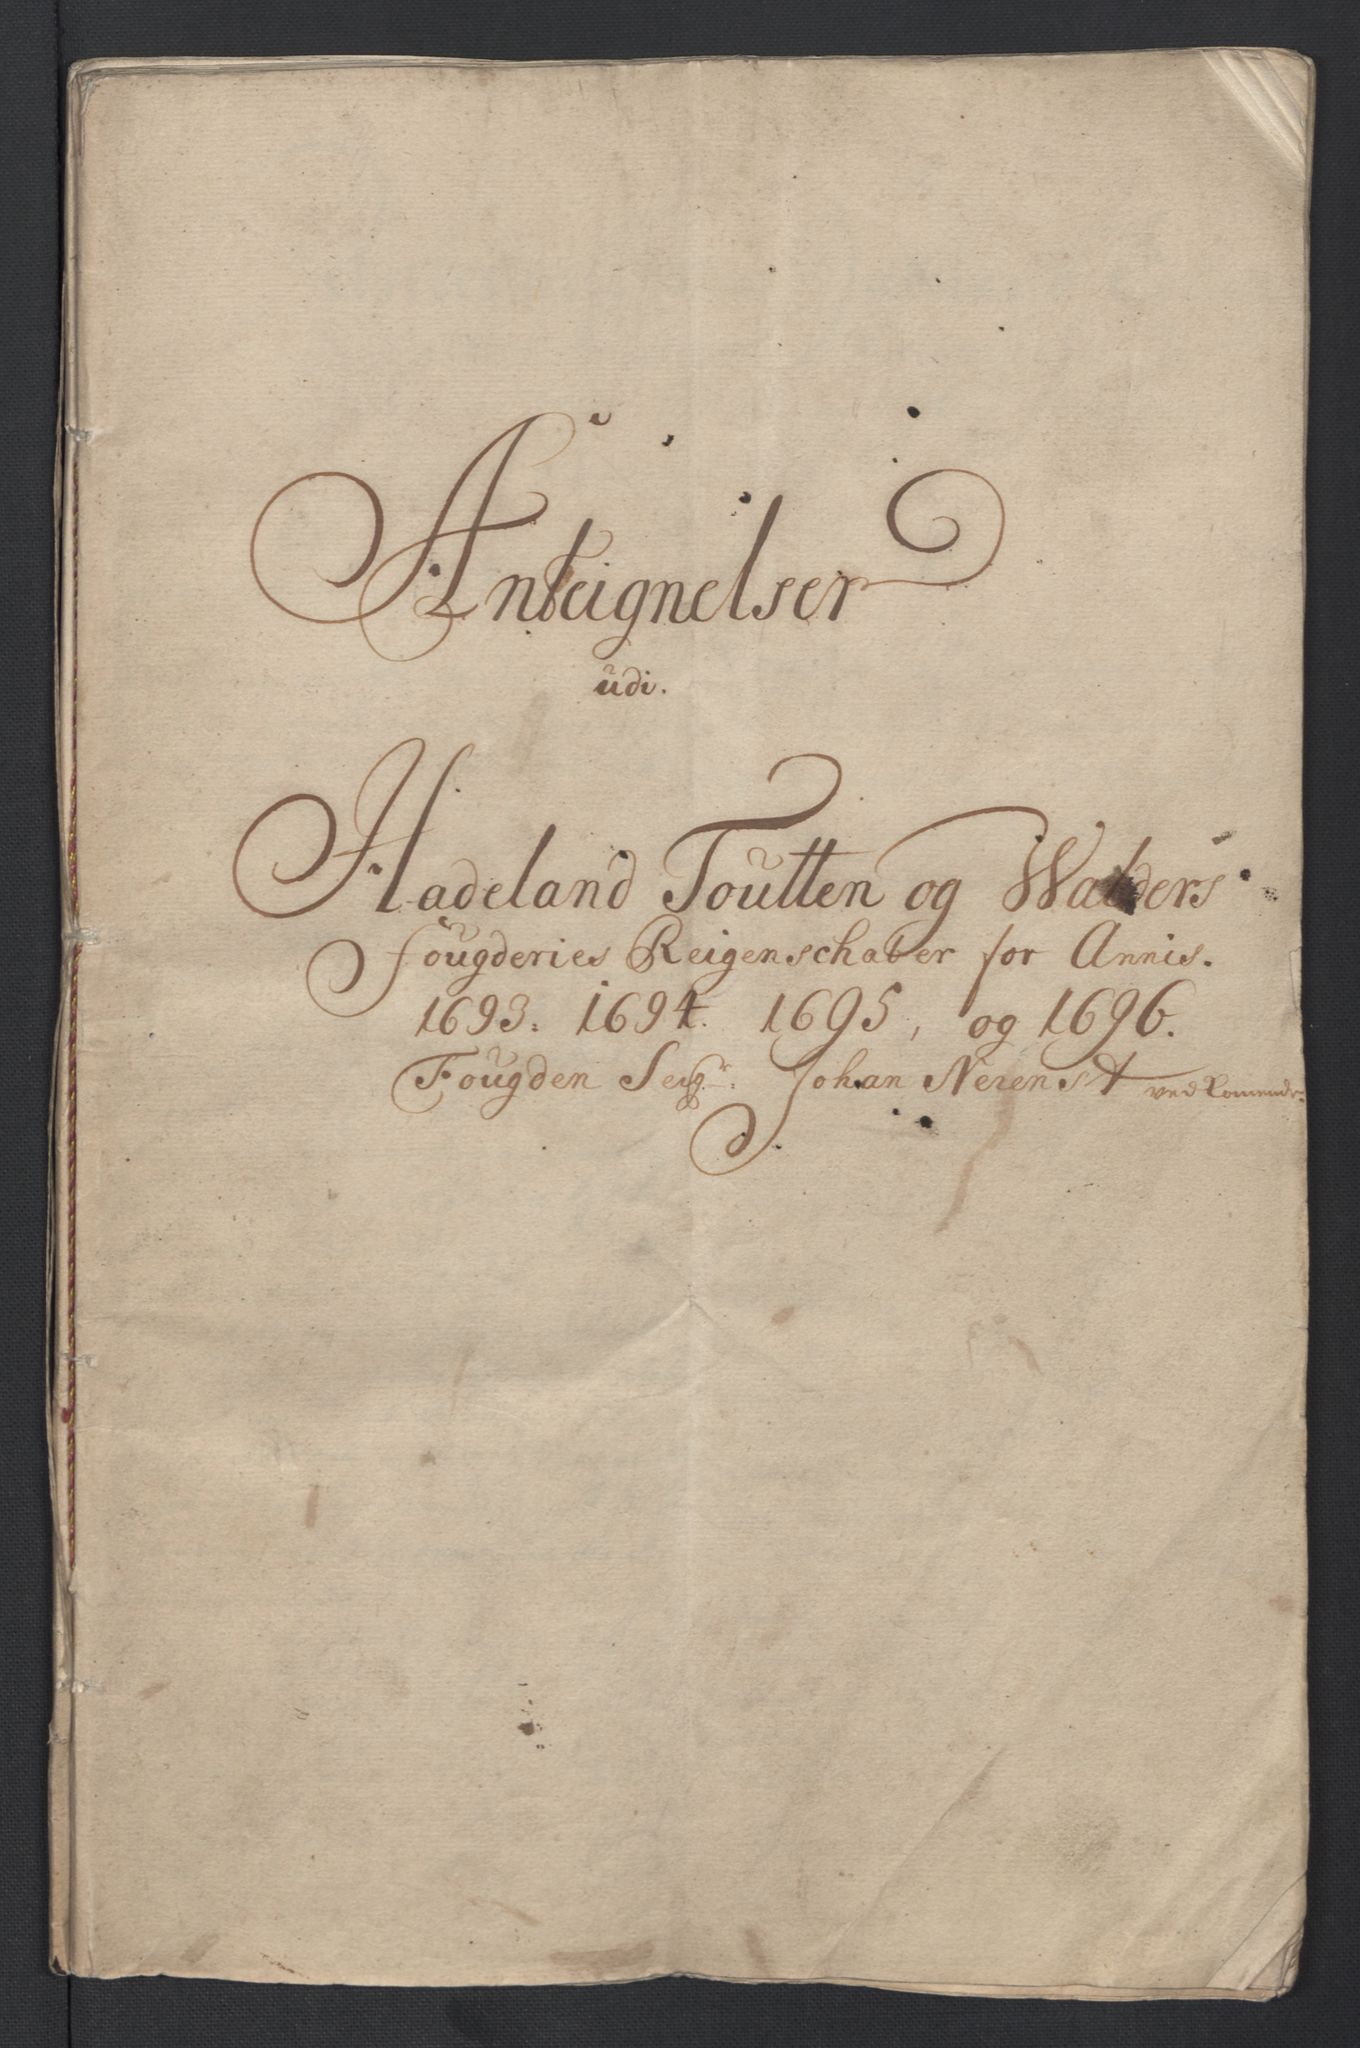 Anteignelser
udi.
Hadeland Toutten og Walders
fougderies Reigenschaber for Annis.
1693. 1694. 1695, og 1696.
Fougden Seigr. Johan Nerenst vedkomende